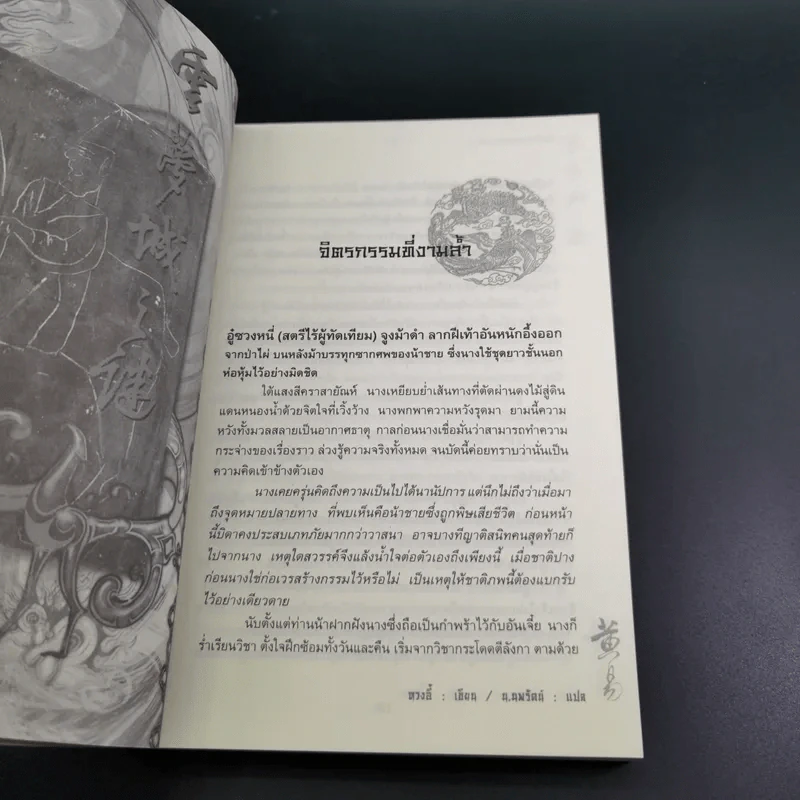 雲
夢
城
之
謎
จิตรกรรมที่งามล้ำ
อู๋ซวงหนี่ (สตรีไร้ผู้ทัดเทียม) จูงม้าดำ ลากฝีเท้าอันหนักอึ้งออก
จากป่าไผ่ บนหลังม้าบรรทุกซากศพของน้าชาย ซึ่งนางใช้ชุดยาวชั้นนอก
ห่อหุ้มไว้อย่างมิดชิด
ใต้แสงสีคราสายัณห์ นางเหยียบย่ำเส้นทางที่ตัดผ่านดงไม้สู่ดิน
แดนหนองน้ำด้วยจิตใจที่เวิ้งว้าง นางพกพาความหวังรุดมา ยามนี้ความ
หวังทั้งมวลสลายเป็นอากาศธาตุ กาลก่อนนางเชื่อมั่นว่าสามารถทำความ
กระจ่างของเรื่องราว ล่วงรู้ความจริงทั้งหมด จนบัดนี้ค่อยทราบว่านั่นเป็น
ความคิดเข้าข้างตัวเอง
นางเคยครุ่นคิดถึงความเป็นไปได้นานัปการ แต่นึกไม่ถึงว่าเมื่อมา
ถึงจุดหมายปลายทาง ที่พบเห็นคือน้าชายซึ่งถูกพิษเสียชีวิต ก่อนหน้า
นี้บิดาคงประสบเภทภัยมากกว่าวาสนา อาจบางทีญาติสนิทคนสุดท้ายก็
ไปจากนาง เหตุใดสวรรค์จึงแล้งน้ำใจต่อตัวเองถึงเพียงนี้ เมื่อชาติปาง
ก่อนนางใช่ก่อเวรสร้างกรรมไว้หรือไม่ เป็นเหตุให้ชาติภพนี้ต้องแบกรับ
ไว้อย่างเดียวดาย
นับตั้งแต่ท่านน้าฝากฝังนางซึ่งถือเป็นกำพร้าไว้กับอันเจี๋ย นางก็
ร่ำเรียนวิชา ตั้งใจฝึกซ้อมทั้งวันและคืน เริ่มจากวิชากระโดดตีลังกา ตามด้วย
黄
易
หวงอี้ : เขียน / น.นพรัตน์ : แปล